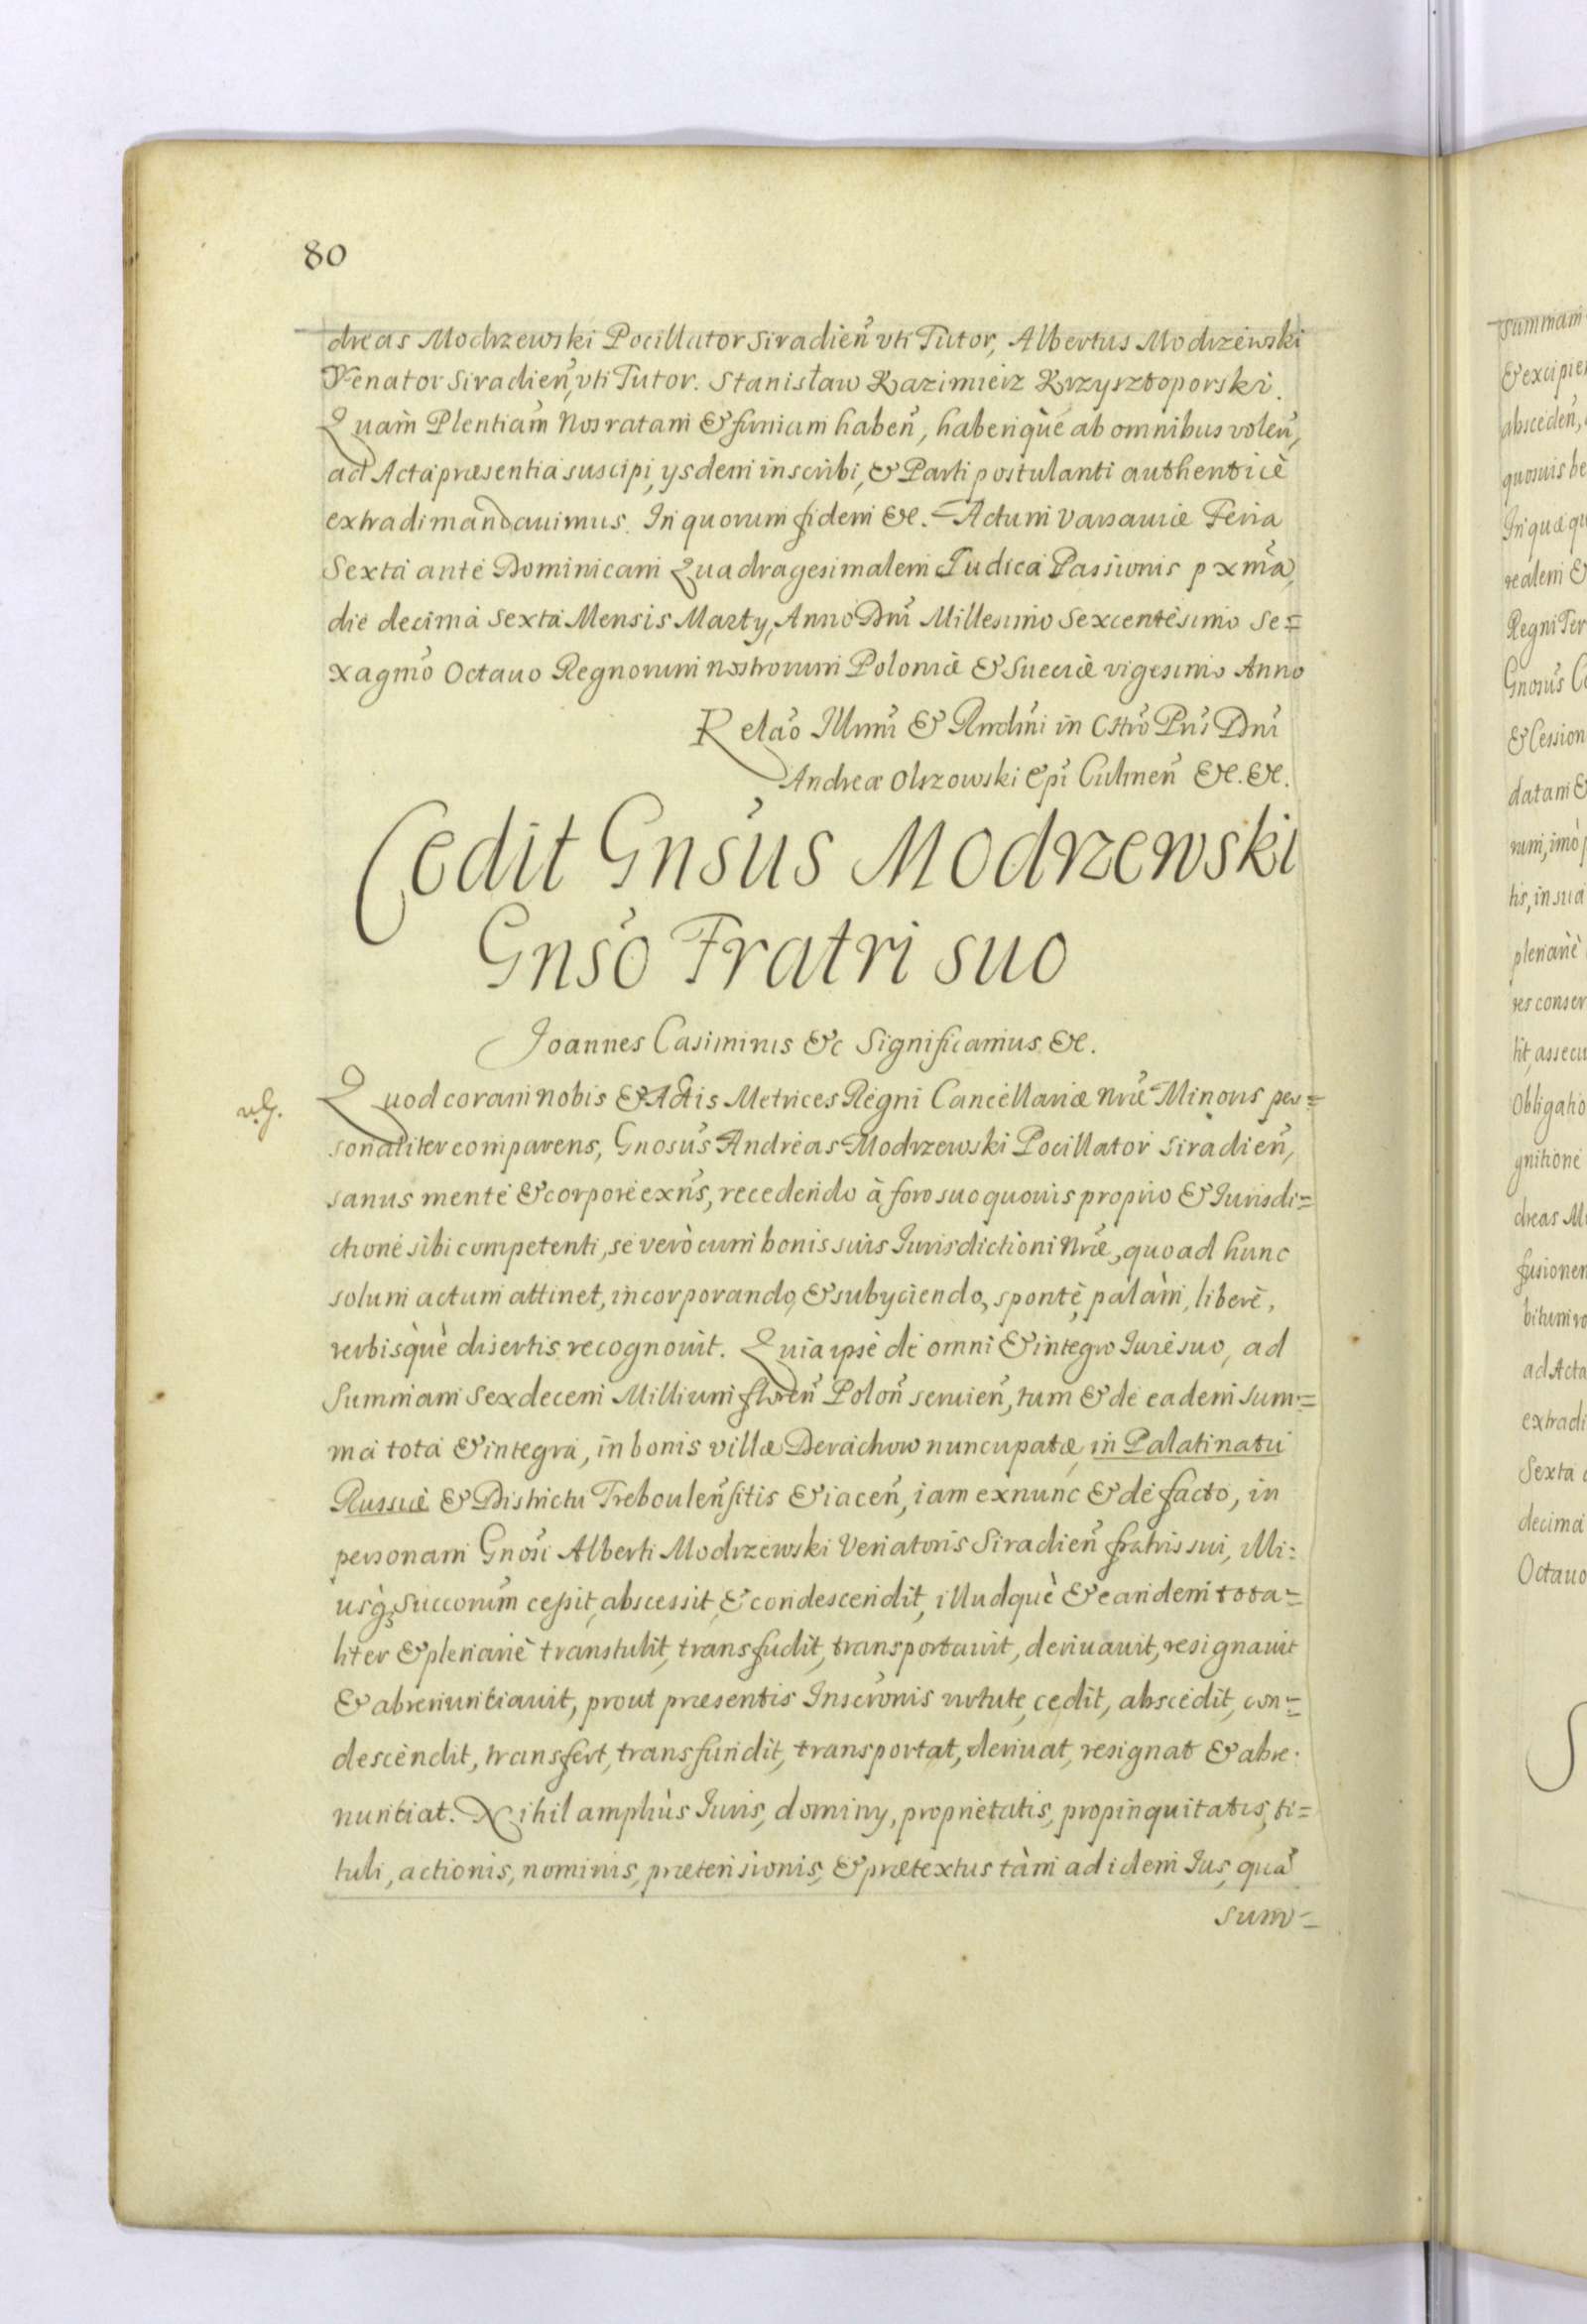 80
dreas Modrzewski Pocillator Siradień vti Tutor, Albertus Modrzewski
Venator Siradień, vti Tutor. Stanisław Kazimierz Krzysztoporski.
Quam Plentiam̃ Nos ratam & firmam habeñ, haberique ab omnibus voleñ,
ad Acta præsentia suscipi, ysdem inscribi, & Parti postulanti authenticè
extradi mandauimus. In quorum fidem &c. Actum Varsauiæ Feria
Sexta ante Dominicam Quadragesimalem Judica Passionis pxm̃a,
die decima Sexta Mensis Marty, Anno Dnĩ Millesimo Sexcentesimo Se=
xagm̃o Octauo Regnorum nostrorum Poloniæ & Sueciæ vigesimo Anno
Relaõ Illmĩ & Rmdĩni in Chrõ Prĩs Dnĩ
Andreæ Olszowski Epĩ Culmeñ &c. &c.
Cedit Gnsũs Modrzewski
Gnsõ Fratri suo
Joannes Casimirus &c Significamus &c.
Quod coram nobis & Actis Metrices Regni Cancellariæ Nrãe Minoris per=
sonaliter comparens, Gnosũs Andreas Modrzewski Pocillator Siradień,
sanus mente & corpore exñs, recedendo à foro suo quouis proprio & Jurisdi=
ctione sibi competenti, se verò cum bonis suis Jurisdictioni Nrãe, quoad hunc
solum actum attinet, incorporando, & subyciendo, spontè, palàm, liberè,
verbisquè disertis recognouit. Quia ipse de omni & integro Jure suo, ad
Summam Sexdecem Millium floreñ Poloñ seruień, tum & de eadem sum=
ma tota & integra, in bonis villæ Derachow nuncupatæ, in Palatinatu
Russiæ & Districtu Trebouleñ sitis & iaceñ, iam exnunc & de facto, in
personam Gnosĩ Alberti Modrzewski Venatoris Siradień fratris sui, illi=
usq3 Succorum̃ cessit, abscessit, & condescendit, illudquè & eandem tota=
liter & plenariè transtulit, transfudit, transportauit, deriuauit, resignauit
& abrenuntiauit, prout præsentis Inscrõnis virtute, cedit, abscedit, con=
descendit, transfert, transfundit, transportat, deriuat, resignat & abre=
nuntiat. Nihil ampliùs Juris, dominy, proprietatis, propinquitatis, ti=
tuli, actionis, nominis, prætensionis, & prætextus tàm ad idem Jus, quã
sum=
Summam
& excipien
absceden̄,
quouis be
In quæ qu
realem &
Regni Ter
Gnosũs
& Cession
datam &
rum, imò
tis, in sua
plenariè
res conser
lit, assecu
Obligatio
gnitione
dreas M
fusionem
bitum ro
ad Acta
extradi
Sexta
decima
Octauo